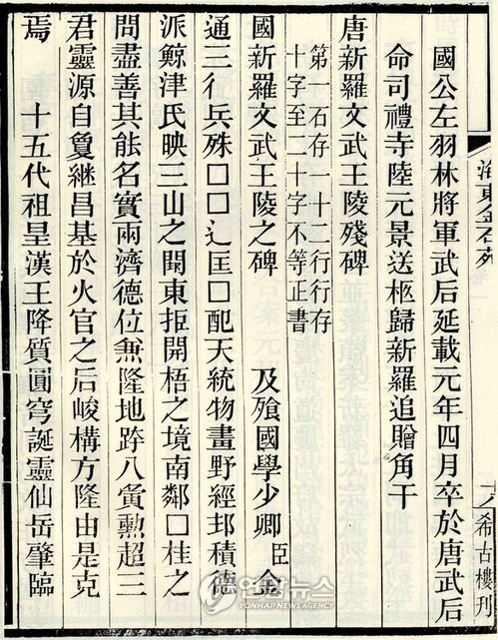 海東金石苑
希古樓刊
國公左羽林將軍武后延載元年四月卒於唐武后
命司禮寺陸元景送柩歸新羅追贈角干
唐新羅文武王陵殘碑
第一石存一十二行行存
十字至二十字不等正書
國新羅文武王陵之碑　　及飱國學少卿臣金
通三行兵殊□□辶匡□配天統物畫野經邦積德
派鯨津氏映三山之闕東拒開梧之境南鄰□桂之
問盡善其能名實兩濟德位兼隆地跨八夤勳超三
君靈源自夐繼昌基於火官之后峻構方隆由是克
焉　十五代祖星漢王降質圓穹誕靈仙岳肇臨
연합뉴스
YONHAP NEWS AGENCY